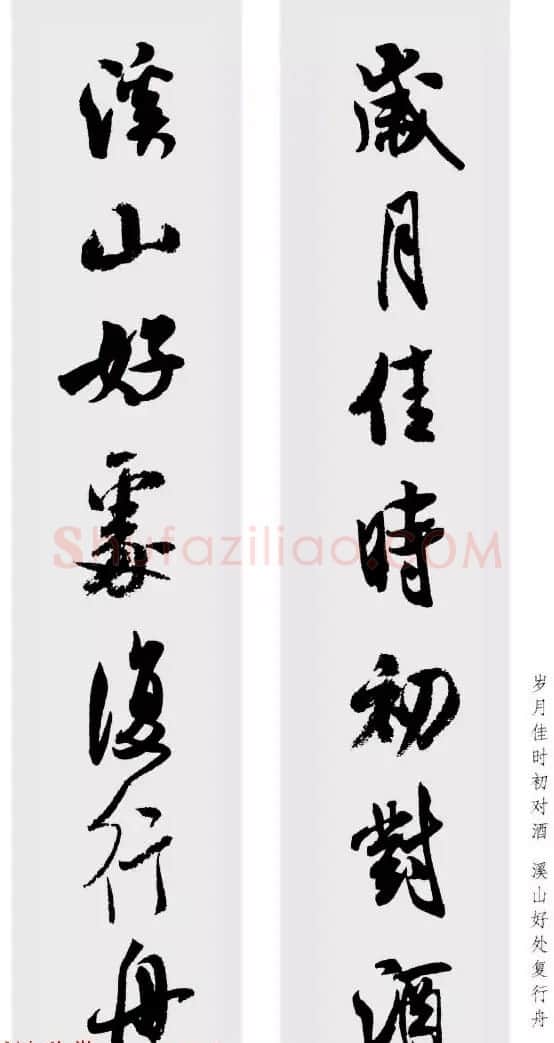 歲月佳時初對酒
溪山好處復行舟
岁月佳时初对酒 溪山好处复行舟
Shufaziliao.COM